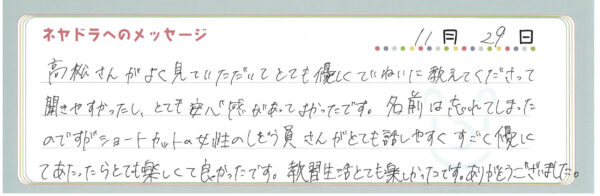 ネヤドラへのメッセージ 11月 29日
高松さんがよく見ていただいてとても優しくていねいに教えてくださって
聞きやすかったし、とても安心感があってよかったです。名前は忘れてしまった
のですがショートカットの女性のしどう員さんがとても話しやすくすごく優しく
てあたったらとても楽しくて良かったです。教習生活とても楽しかったです。ありがとうございました。